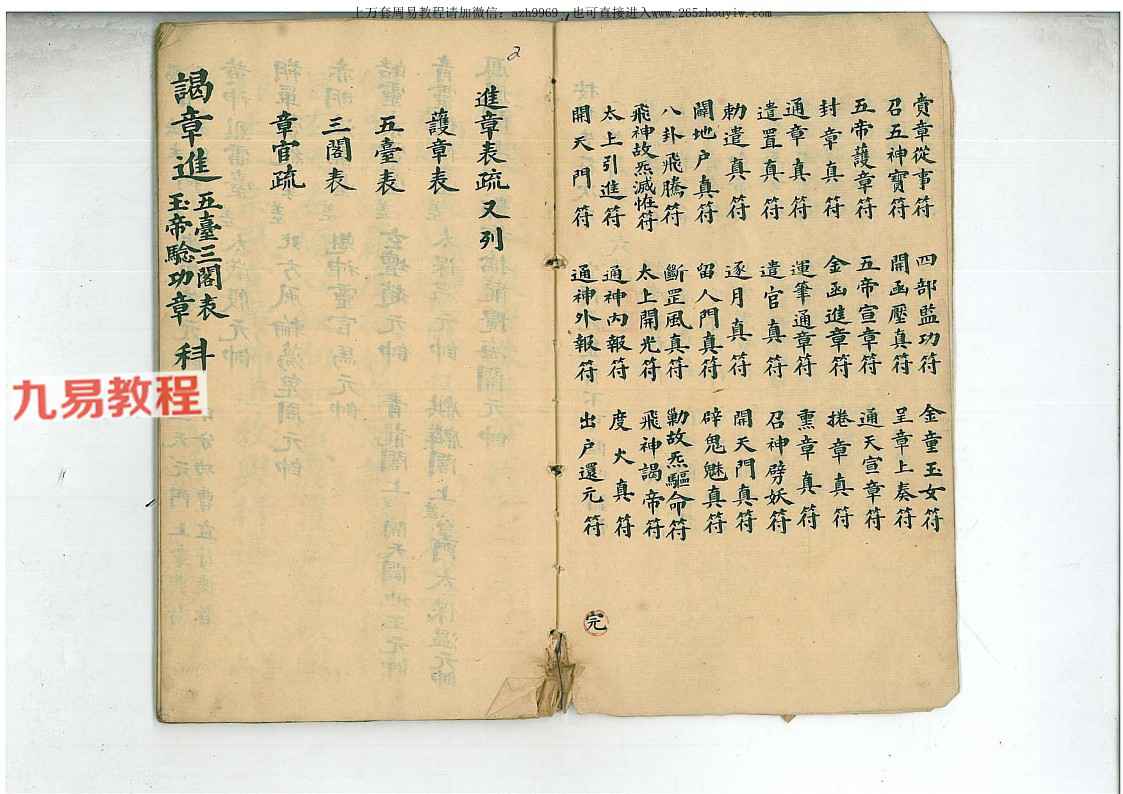 上万套周易教程请加微信：azh9969 ，也可直接进入www.265zhouyiw.com
2
賫章從事符 四部監功符 金童玉女符
召五神寶符 開函壓真符 呈章上奏符
五帝護章符 五帝宣章符 通天宣章符
封章真符 金函進章符 捲章真符
通章真符 運筆通章符 熏章真符
遣置真符 遣官真符 召神劈妖符
勅遣真符 逐月真符 開天門真符
闢地户真符 留人門真符 辟鬼魅真符
八卦飛騰符 斷罡風真符 勦故炁驅命符
飛神故炁滅恠符 太上開光符 飛神謁帝符
太上引進符 通神内報符 度火真符
開天門符 通神外報符 出户還元符
完
進章表疏又列
護章表
五臺表
三閣表
章官疏
謁章進五臺三閣表玉帝驗功章科
九易教程